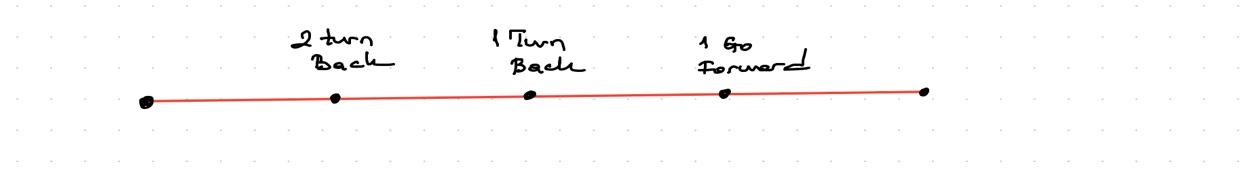 2 turn
Back
1 Turn
Back
1 Go
Forward